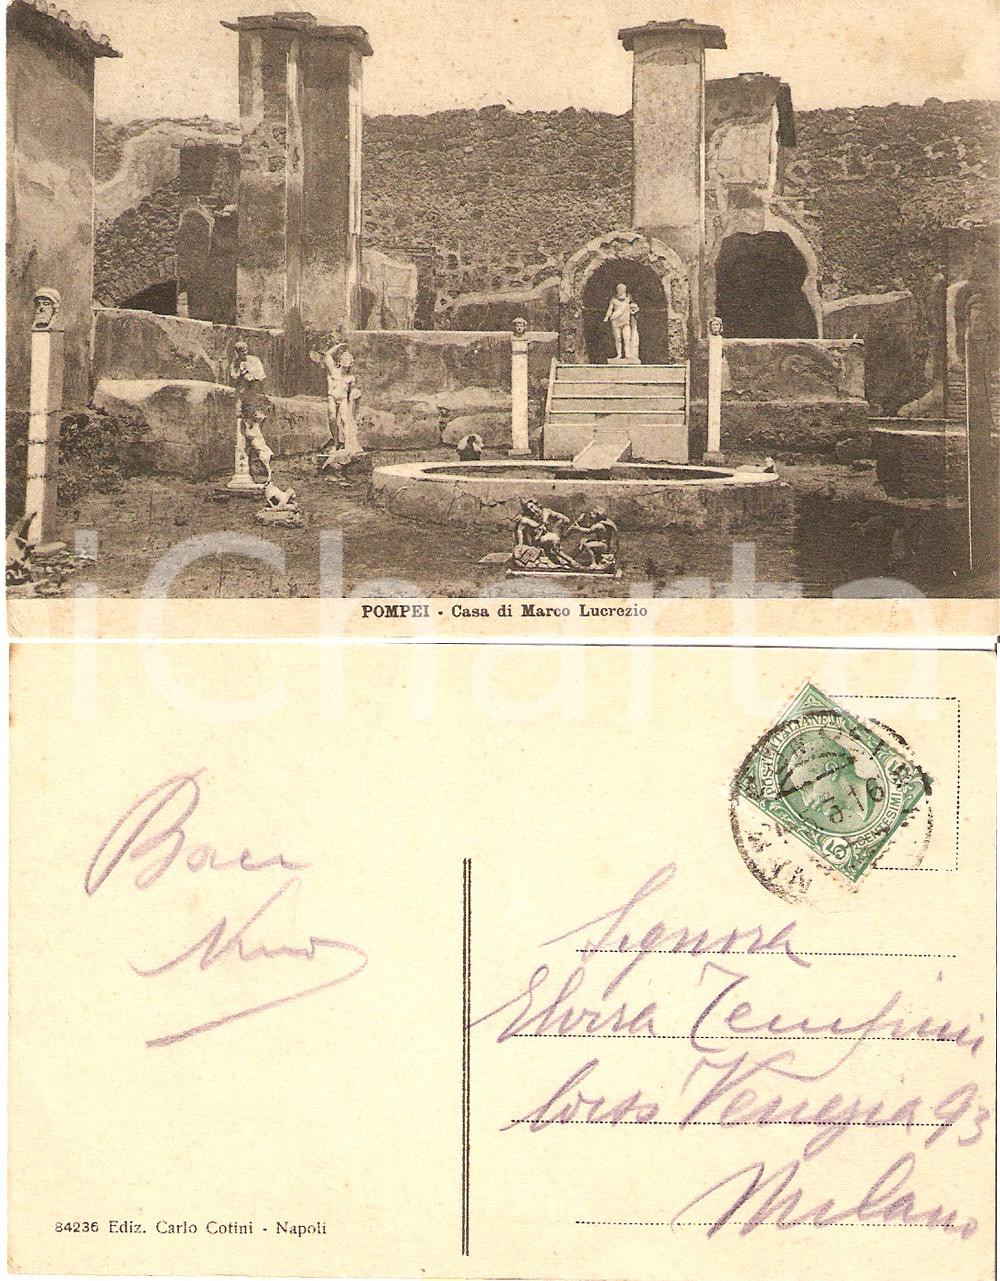 POMPEI - Casa di Marco Lucrezio
iCharta
POSTE ITALIANE
CENTESIMI
16
Baci
Nino
Signora
Elvira
Corso Venezia 93
Milano
84236 Ediz. Carlo Cotini - Napoli